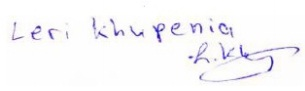 Leri Khupenia
L.Kh